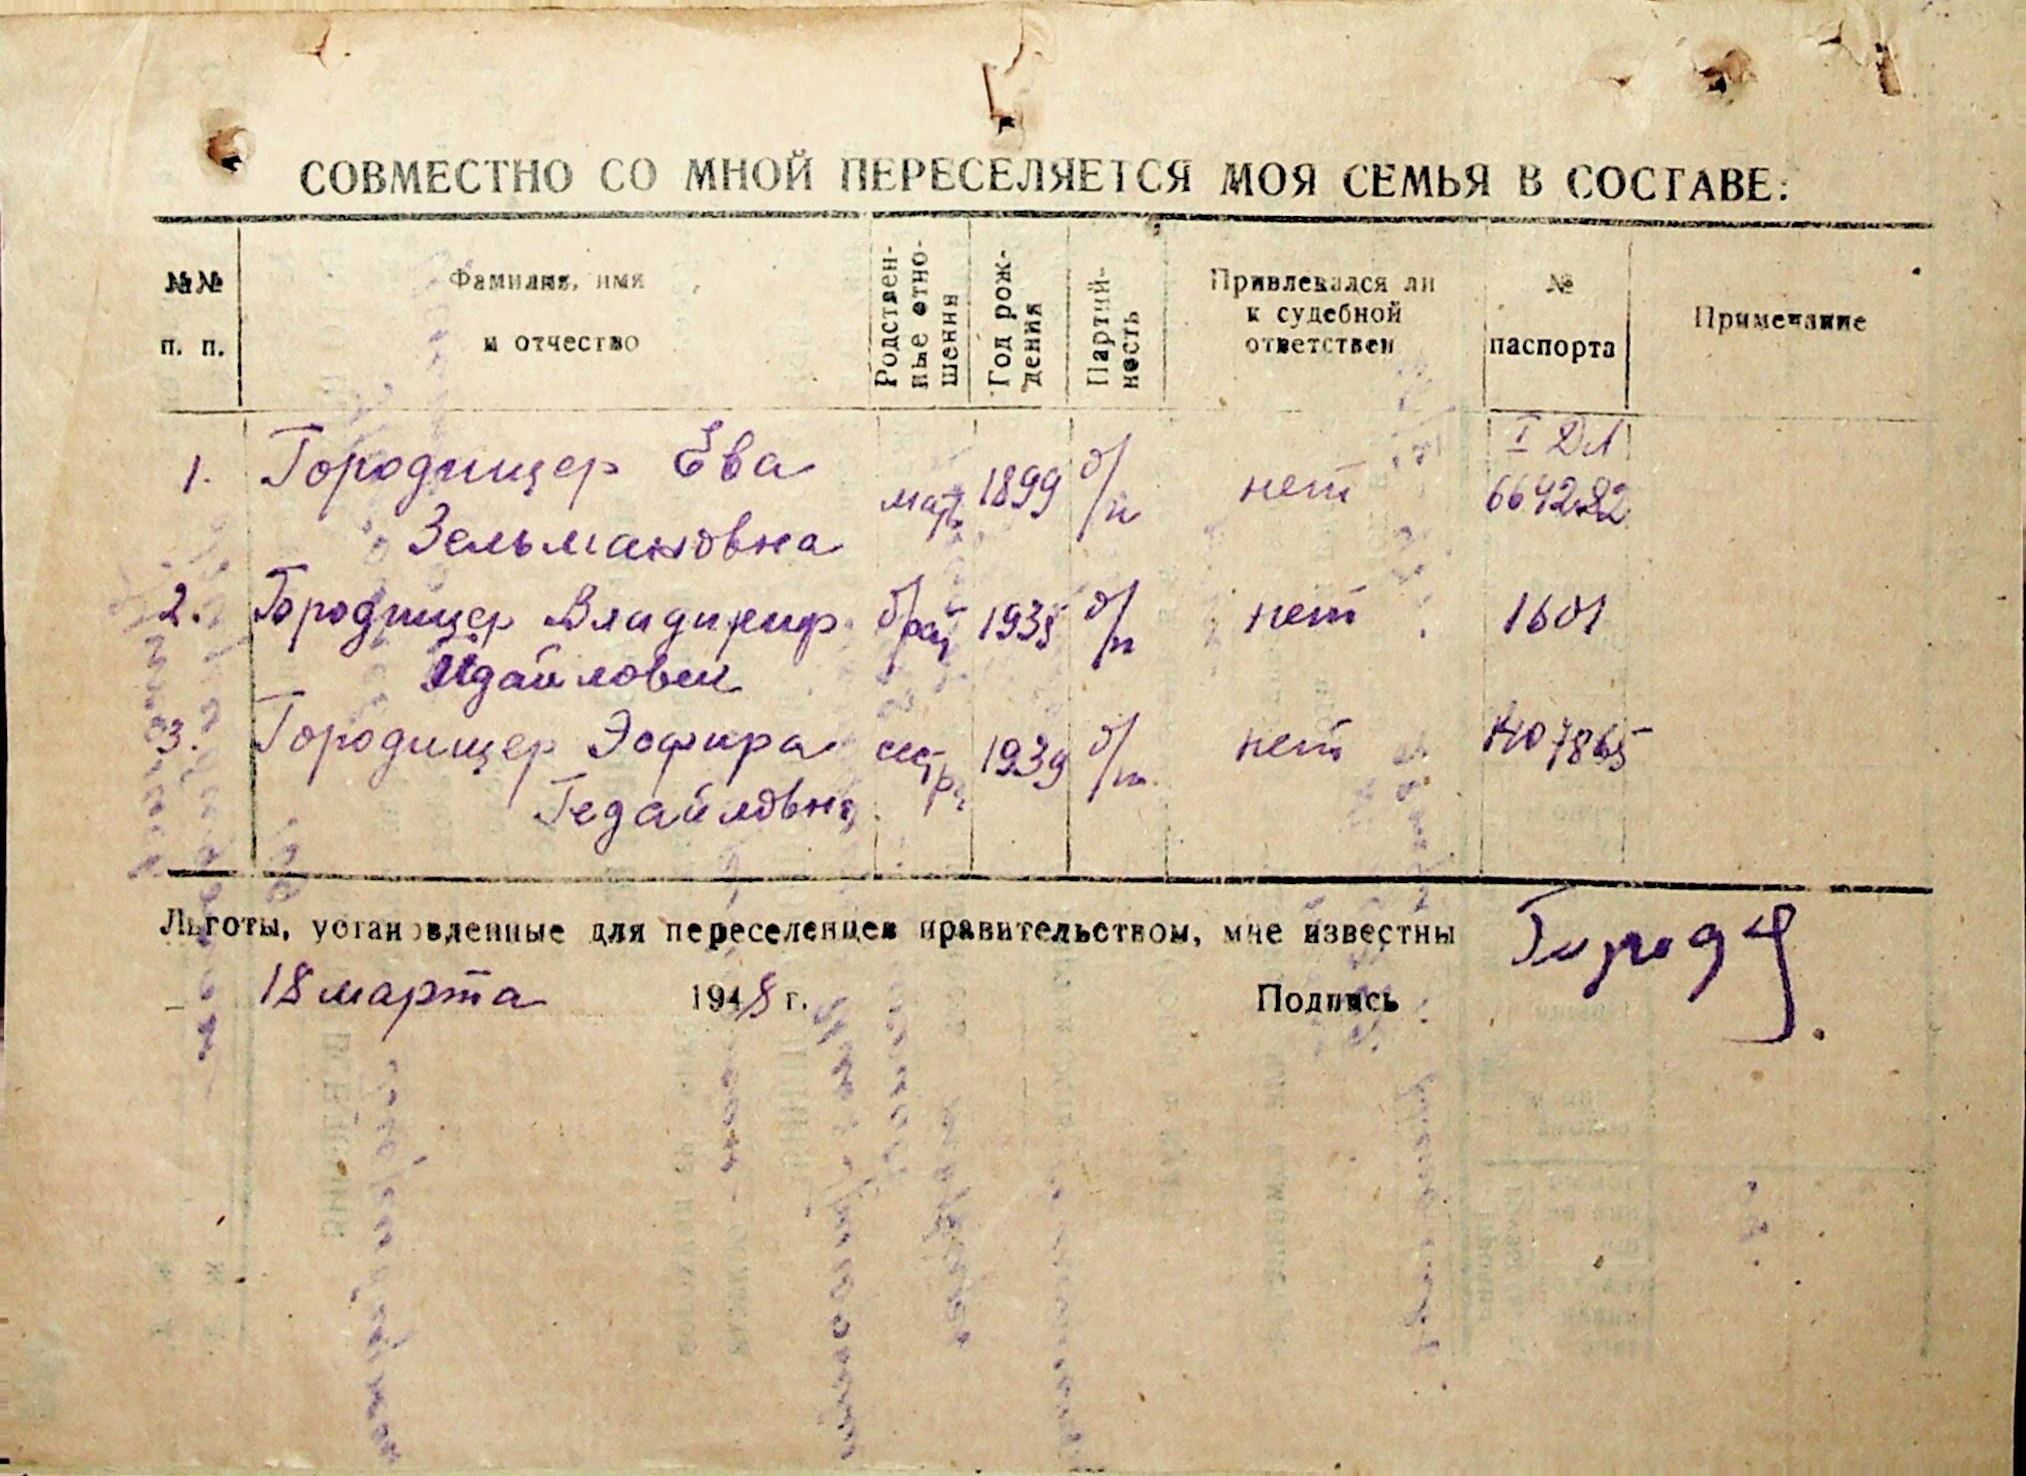 СОВМЕСТНО СО МНОЙ ПЕРЕСЕЛЯЕТСЯ МОЯ СЕМЬЯ В СОСТАВЕ:
№№ п. п.
Фамилия, имя и отчество
Родственные отношения
Год рождения
Партийность
Привлекался ли к судебной ответствен
№ паспорта
Примечание
1. Городищер Ева мать 1899 б/п нет I ДЛ 664282
Зельмановна
2. Городищер Владимир брат 1935 б/п нет 1601
Гдайлович
3. Городищер Эсфира сестра 1939 б/п нет 7865
Гедайловна
Льготы, установленные для переселенцев правительством, мне известны
18 марта 1948 г. Подпись